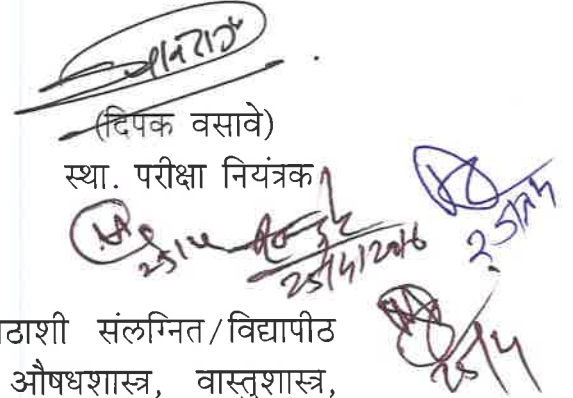 (दिपक वसावे)
स्था. परीक्षा नियंत्रक
25/4 25/4/2016 25/4
ठाशी संलग्नित/विद्यापीठ
औषधशास्त्र, वास्तुशास्त्र,
25/4